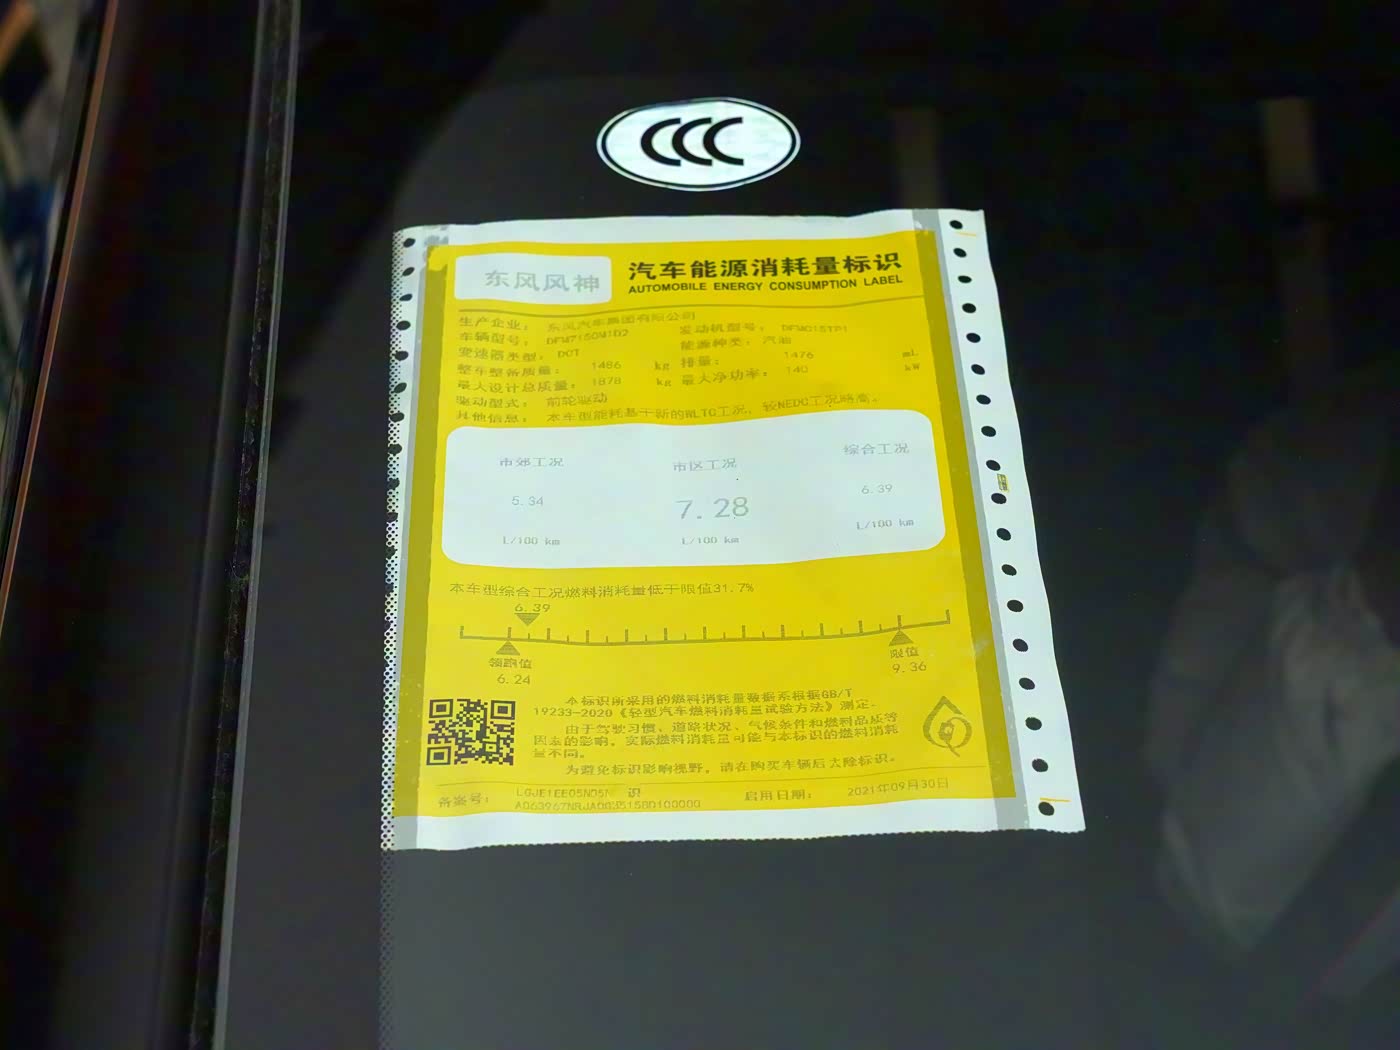 CCC
东风风神
汽车能源消耗量标识
AUTOMOBILE ENERGY CONSUMPTION LABEL
生产企业： 东风汽车集团有限公司
车辆型号： DFM7150M1D2 发动机型号： DFMC15TP1
变速器类型： DCT 能源种类： 汽油
整车整备质量： 1486 kg 排量： 1476 mL
最大设计总质量： 1878 kg 最大净功率： 140 kW
驱动型式： 前轮驱动
其他信息： 本车型能耗基于新的WLTC工况，较NEDC工况略高。
市郊工况 市区工况 综合工况
5.34 7.28 6.39
L/100 km L/100 km L/100 km
本车型综合工况燃料消耗量低于限值31.7%
6.39
领跑值 限值
6.24 9.36
本标识所采用的燃料消耗量数据系根据GB/T
19233-2020《轻型汽车燃料消耗量试验方法》测定。
由于驾驶习惯、道路状况、气候条件和燃料品质等
因素的影响，实际燃料消耗量可能与本标识的燃料消耗
量不同。
为避免标识影响视野，请在购买车辆后去除标识。
备案号： 启用日期： 2021年09月30日